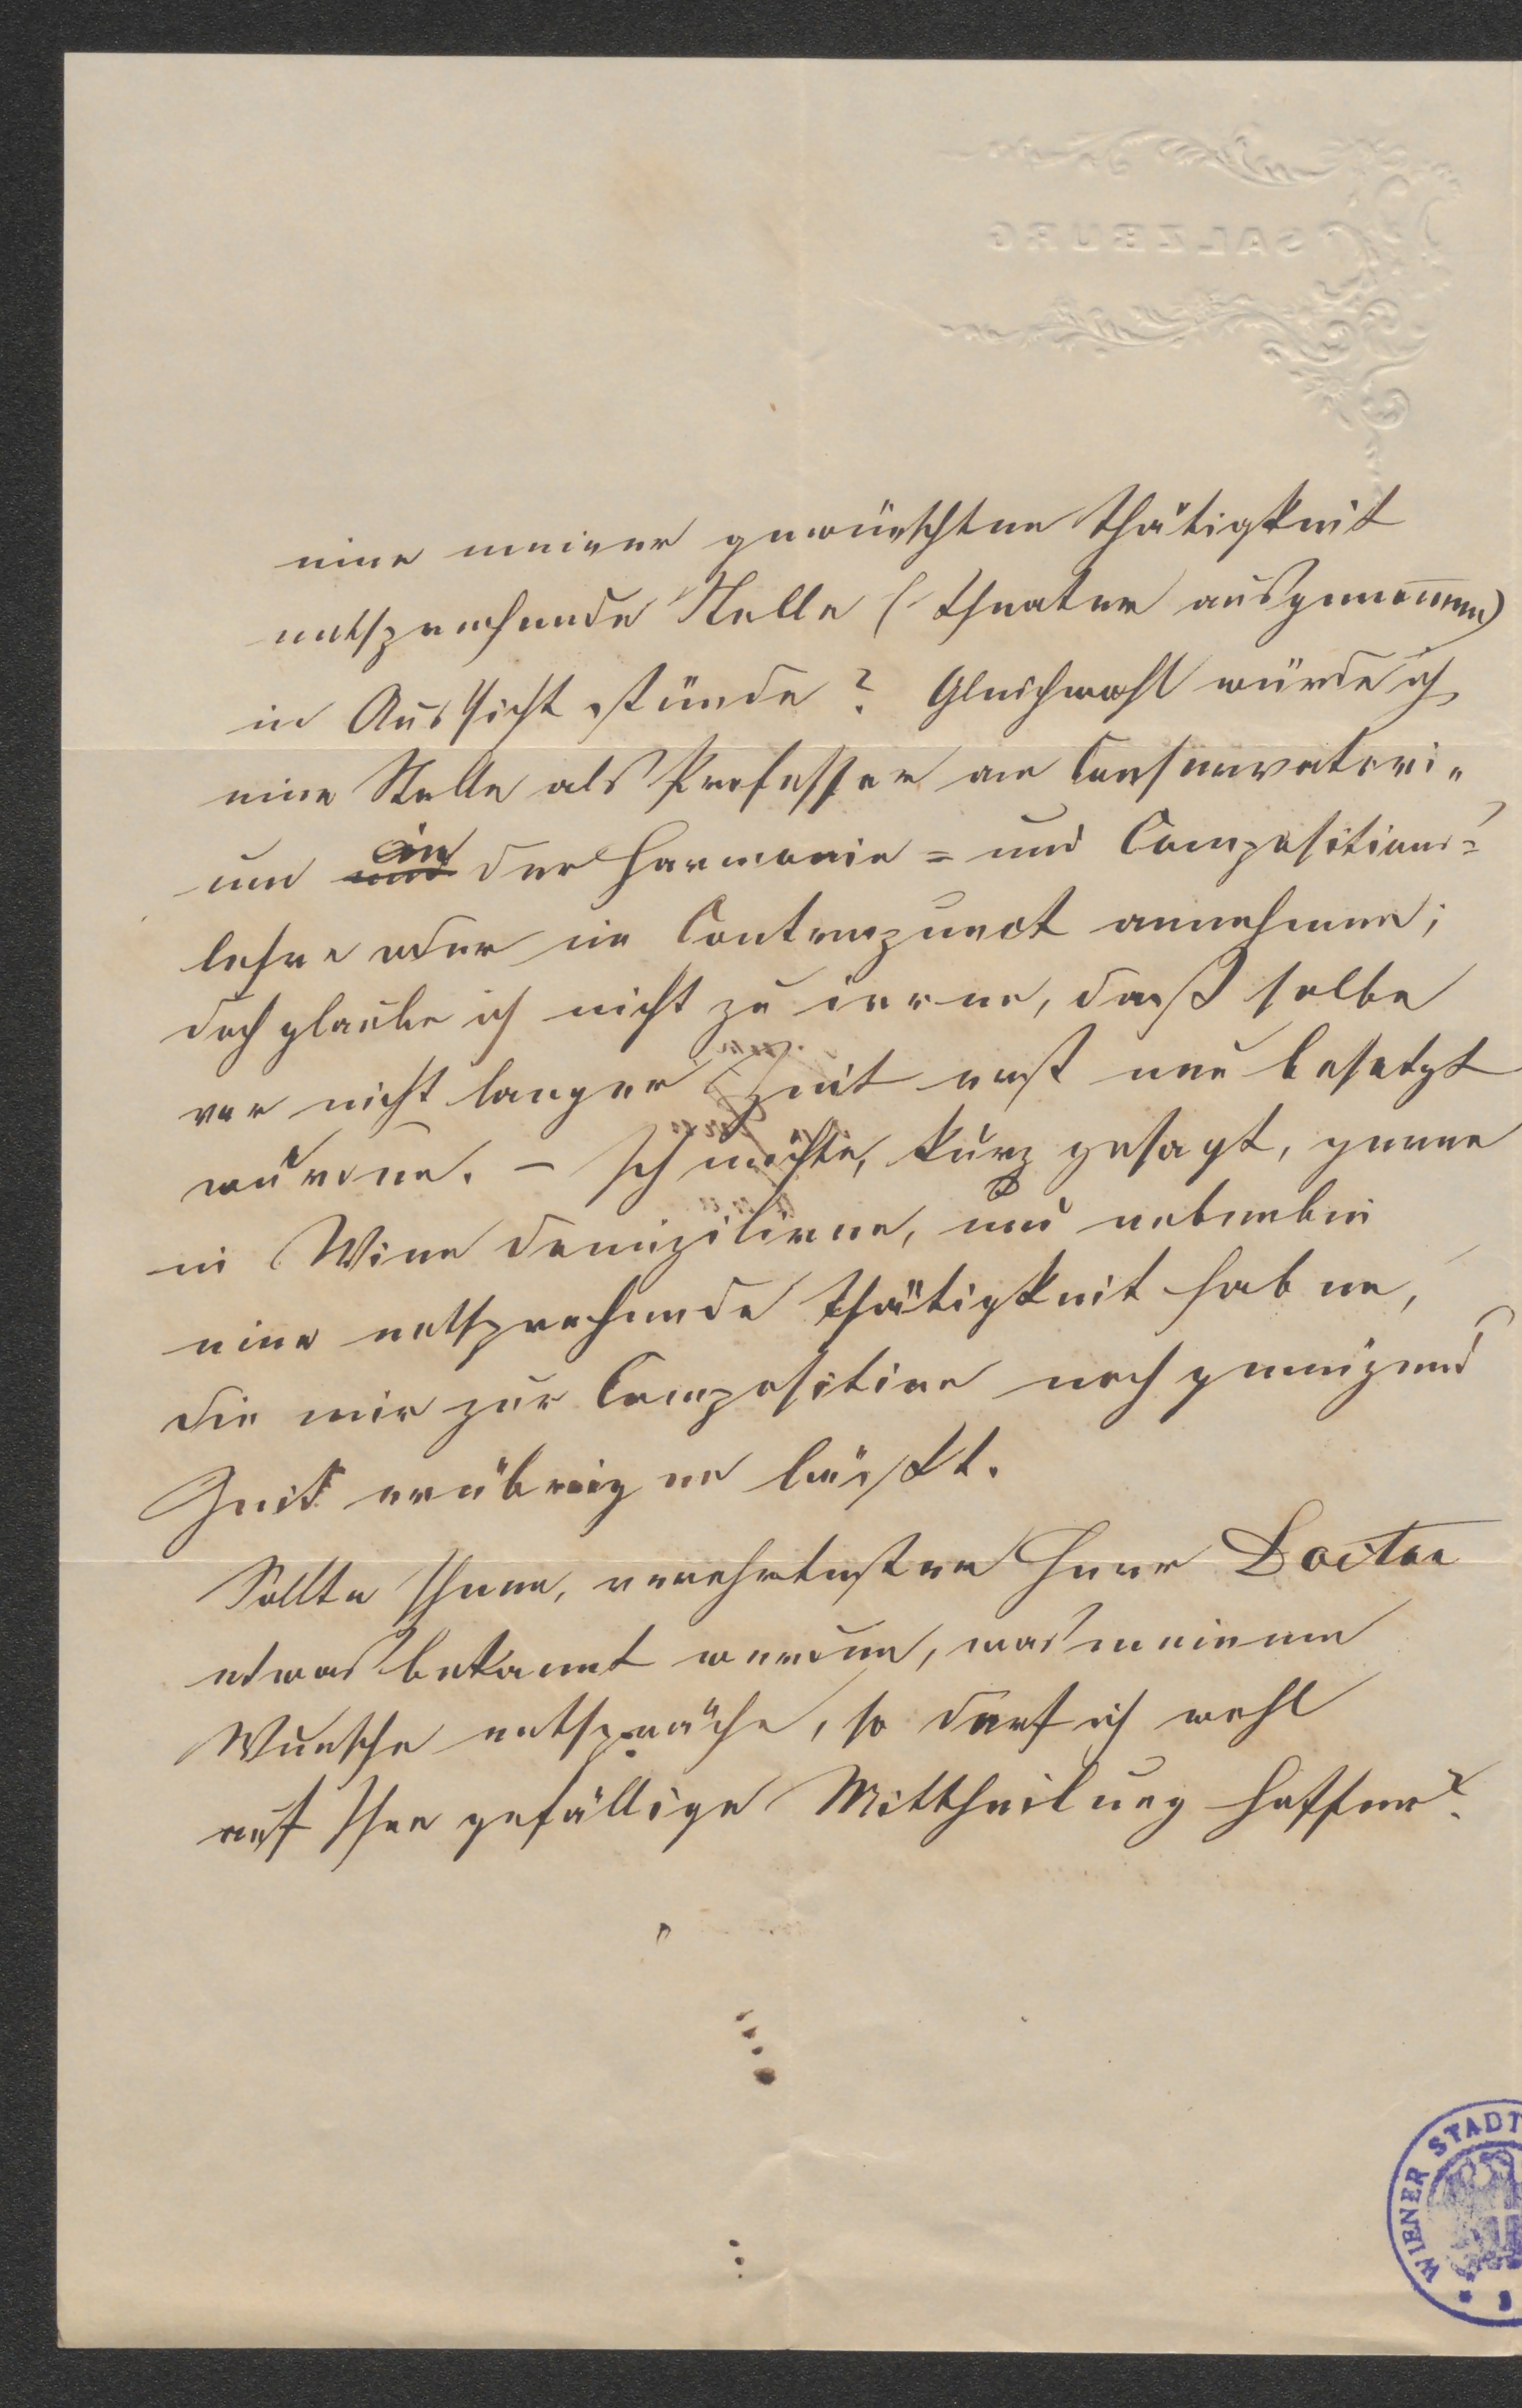 SALZBURG
eine meiner gewünschten Thätigkeit
entsprechende Stelle (Theater ausgenomen)
in Aussicht stünde? Gleichwohl würde ich
eine Stelle als Professor am Conservatori„
um und in der Harmonie= und Compositions=
lehre oder im Contrapunct annehmen;
doch glaube ich nicht zu irren, daß selbe
vor nicht langer Zeit erst neu besetzt
wurden. – Ich möchte, kurz gesagt, gerne
in Wien domiziliren, und nebenbei
eine entsprechende Thätigkeit haben,
die mir zur Composition noch genügend
Zeit erübrigen läßt.
Sollte Ihnen, verehrtester Herr Doctor
etwas bekannt werden, was meinem
Wunsche entspräche, so darf ich wohl
auf Ihre gefällige Mittheilung hoffen?
WIENER STADT